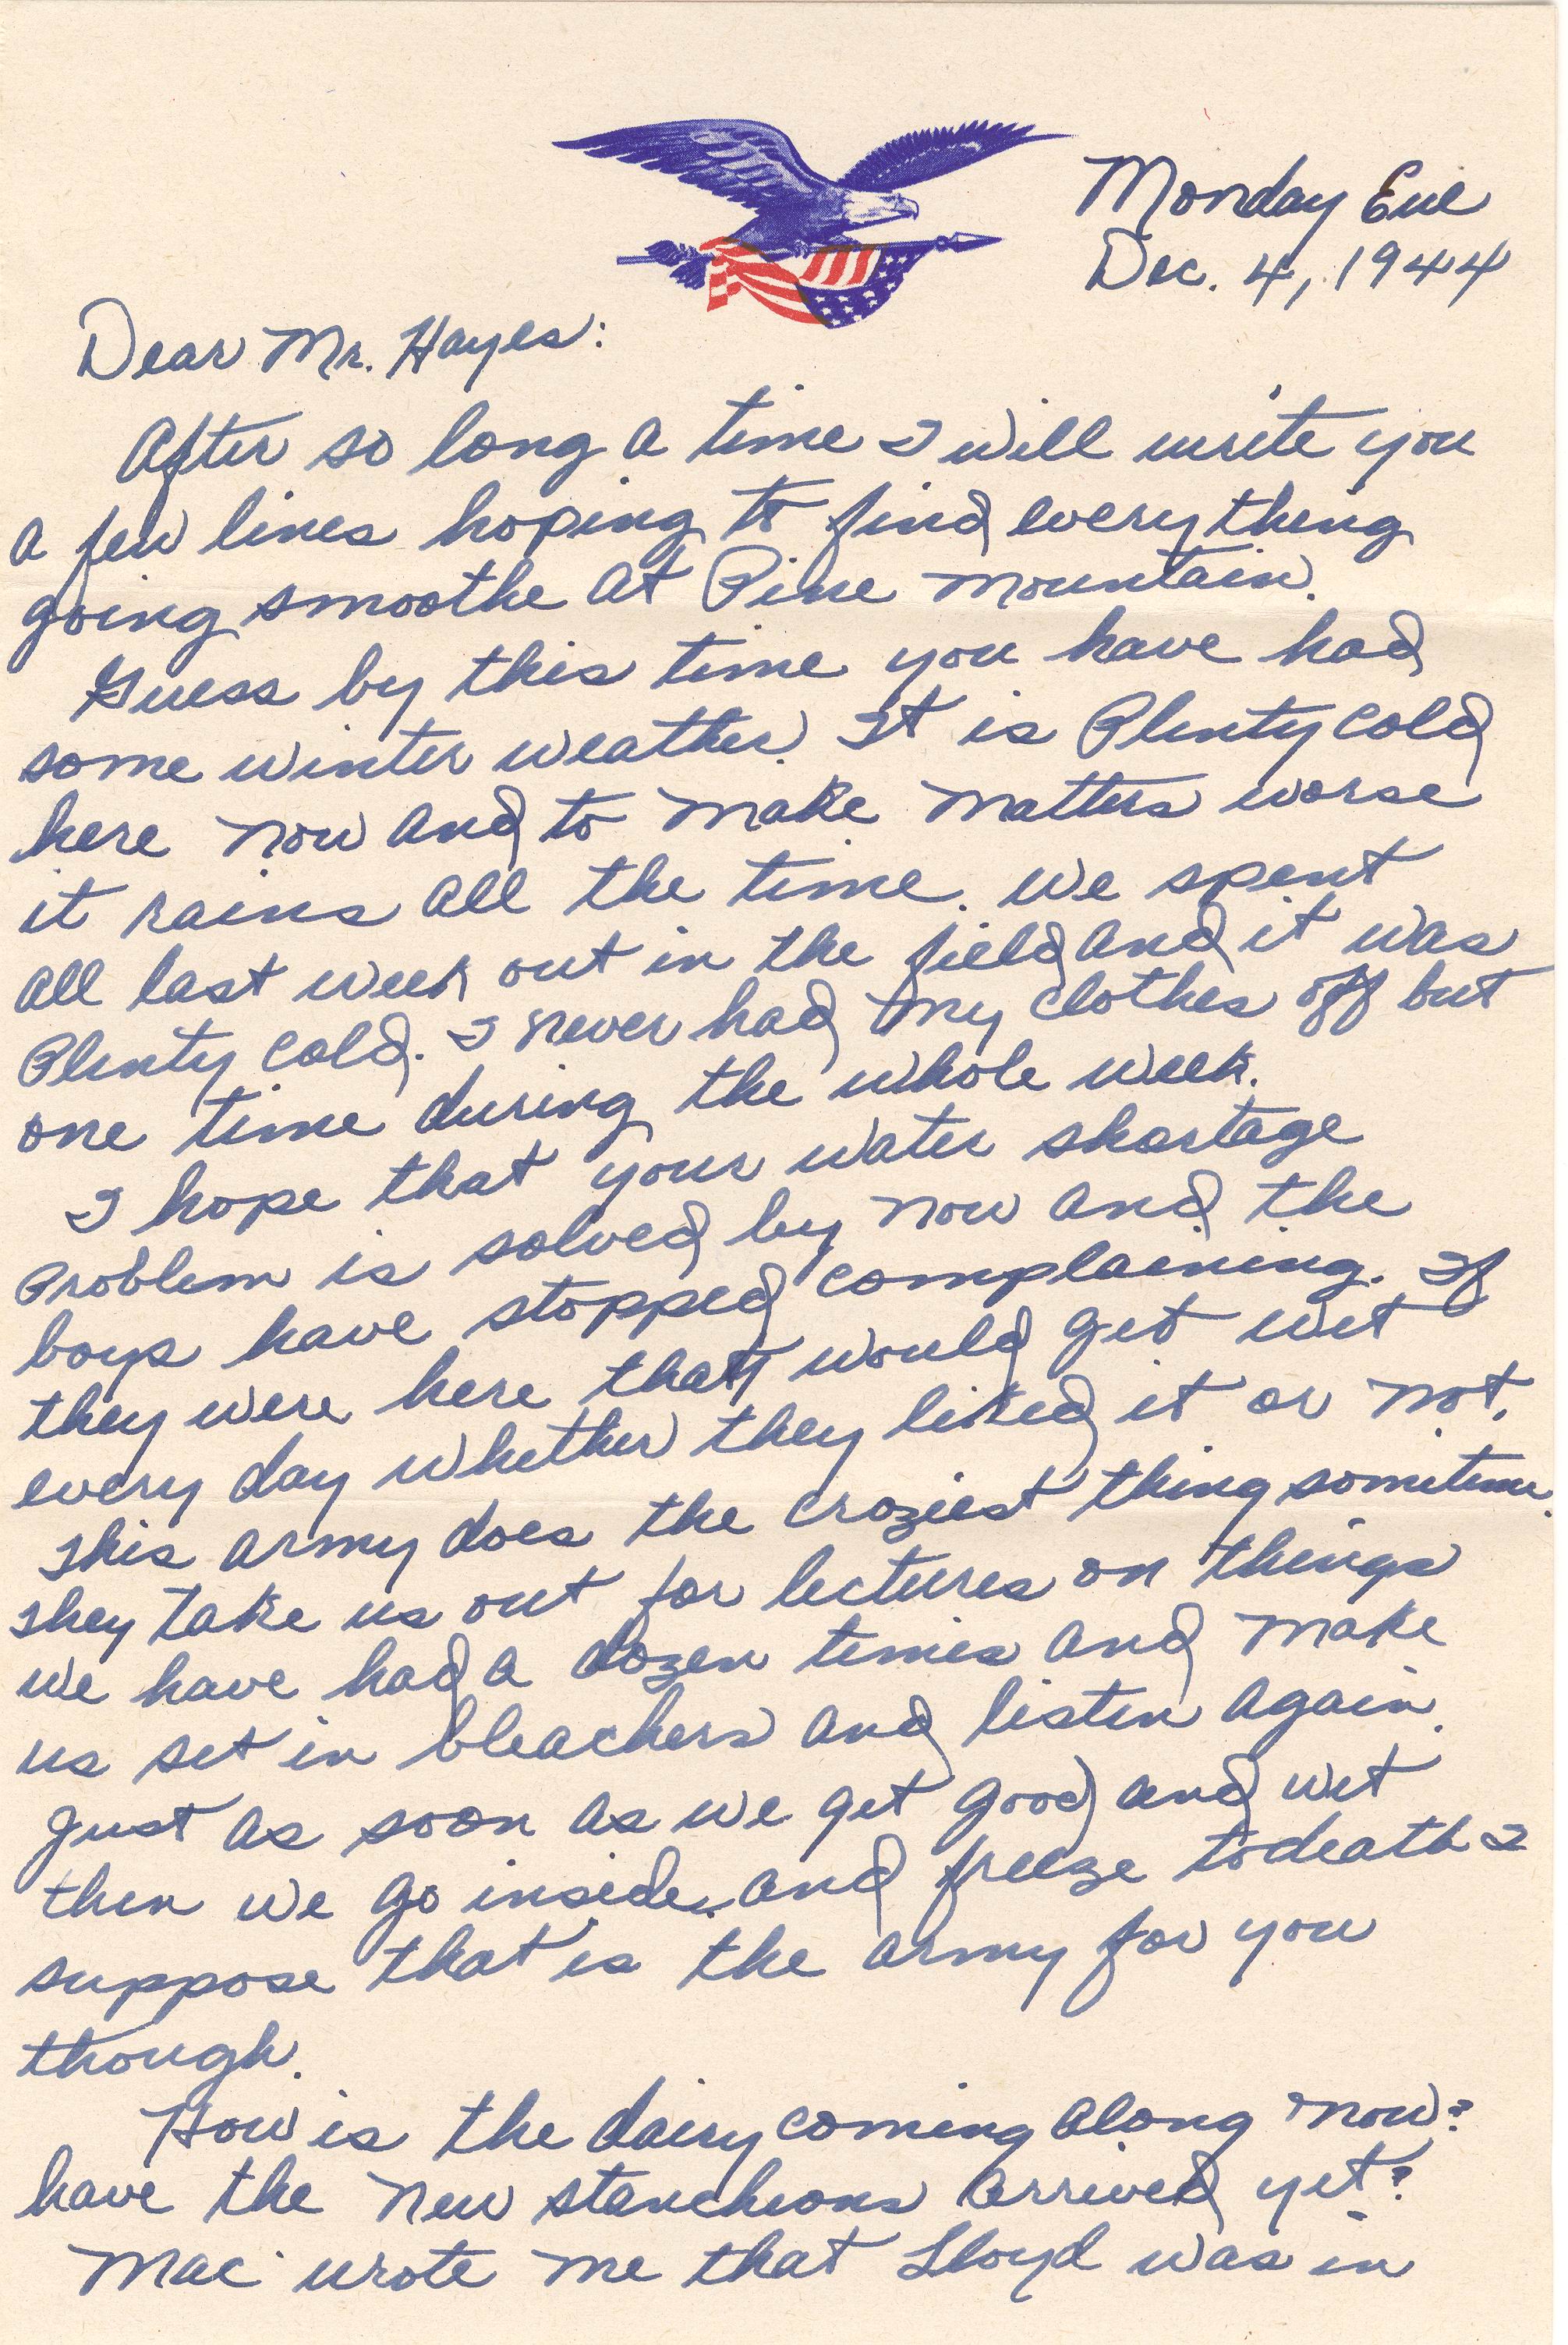 Monday Eve
Dec. 4, 1944
Dear Mr. Hayes:
After so long a time I will write you
a few lines hoping to find everything
going smoothe at Pine Mountain.
Guess by this time you have had
some winter weather. It is Plenty cold
here now and to make matters worse
it rains all the time. We spent
all last week out in the field and it was
Plenty cold. I never had my clothes off but
one time during the whole week.
I hope that your water shortage
Problem is solved by now and the
boys have stopped complaining. If
they were here they would get wet
every day whether they liked it or not.
This army does the craziest thing sometime.
They take us out for lectures on things
we have had a dozen times and make
us set in bleachers and listen again.
Just as soon as we get good and wet
then we go inside and freeze to death I
suppose that is the army for you
though.
How is the dairy coming along now?
have the new stancheons arrived yet?
Mac wrote me that Lloyd was in